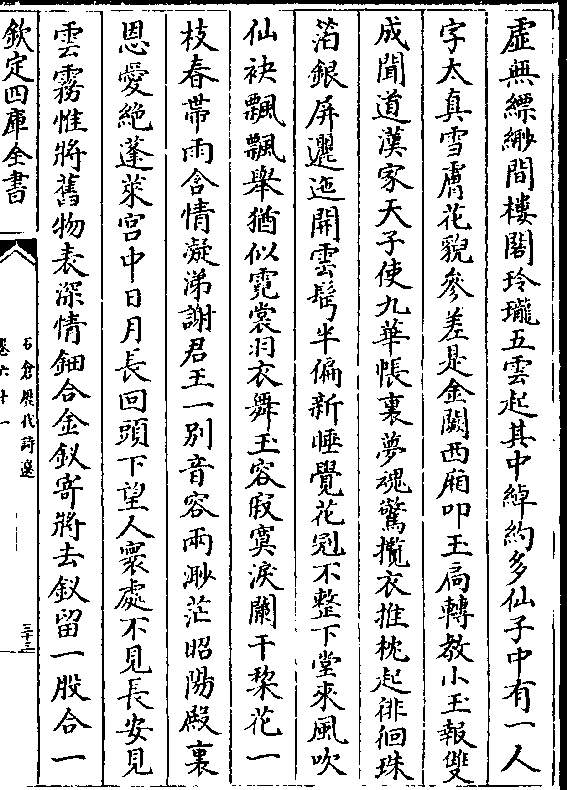 虛無縹緲間樓閣玲瓏五雲起其中綽約多仙子中有一人
字太真雪膚花貌參差是金闕西廂叩玉扃轉教小玉報雙
成聞道漢家天子使九華帳裏夢魂驚攬衣推枕起徘徊珠
箔銀屏邐迤開雲髩半偏新睡覺花冠不整下堂來風吹
仙袂飄飄舉猶似霓裳羽衣舞玉容寂寞淚闌干棃花一
枝春帶雨含情凝涕謝君王一別音容兩渺茫昭陽殿裏
恩愛絶蓬萊宮中日月長回頭下望人寰處不見長安見
雲霧惟將舊物表深情鈿合金釵寄將去釵留一股合一
欽定四庫全書
石倉歷代詩選
卷六十一
三十三